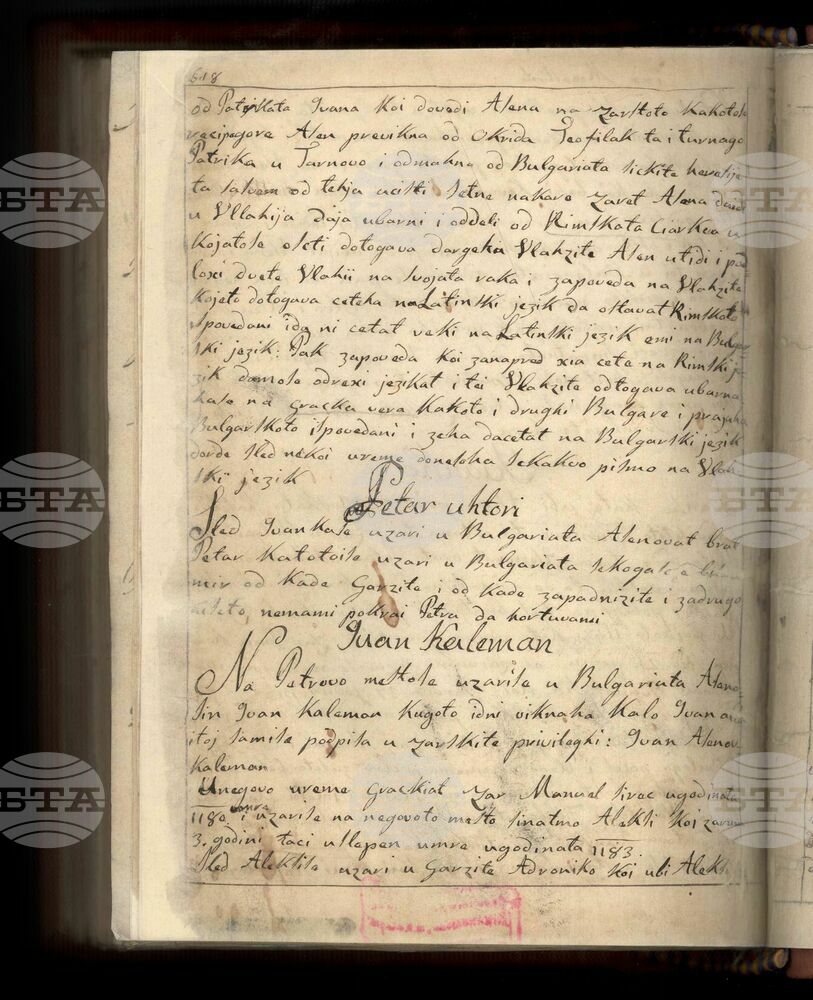 618
od Patrikata Ivana Koi dovedi Asena na zarstoto Kakotose
Asen previkna od Okrida Teofilak ta i turnago
Patrika u Tarnovo i odmakna od Bulgariata sickite heresije
ta salvem od tehja acisti setne nakare zaret Asena da
u Vllahija daja ubarni i oddeli od Rimskata Ciarkva u
Kojatose oseti dotogava dargeha Vlahzite Asen utidi i pod
loxi dvete Vlahii na svojata raka i zapoveda na Vlahzite
Kojeto dotogava ceteha na Latinski jezik da ostavat Rimskoto
Ispovedani i da ni cetat veki na Latinski jezik emi na Bulgar
ski jezik: Pak zapoveda koi zanapred xia cete na Rimski je
zik damose odrexi jezikat i tei Vlahzite odtogava ubarna
hase na Gracka vera Kakoto i drughi Bulgare i prajaha
Bulgarskoto ispovedani i zeha dacetat na Bulgarski jezik
dorde sled nekoi vreme donesoha sekakvo pismo na Vlah
skii jezik
Petar vhtori
Sled Ivan Kase uzari u Bulgariata Asenovat brat
Petar Katotoise uzari u Bulgariata sekogase e
mir od Kade Garzite i od Kade zapadnizite i zadrugo
nisto, nemami pokrai Petra da hortuvami
Ivan Kaleman
Na Petrovo mestose uzarise u Bulgariata Asenov
sin Ivan Kaleman Kogoto idni viknaha Kalo Ivan ama
itoj samise podpisa u zarskite privileghi: Ivan Asenov
Kaleman
Unegovo vreme Grackiat zar Manuel sirec ugodinata
1180 umre i uzarise na negovoto mesto sinatmo Aleksi Koi zaruva
3. godini taci uslepen umre ugodinata 1183.
Sled Aleksise uzari u Garzite Adroniko Koi ubi Aleksi
БТА
БТА
БТА
БТА
БТА
БТА